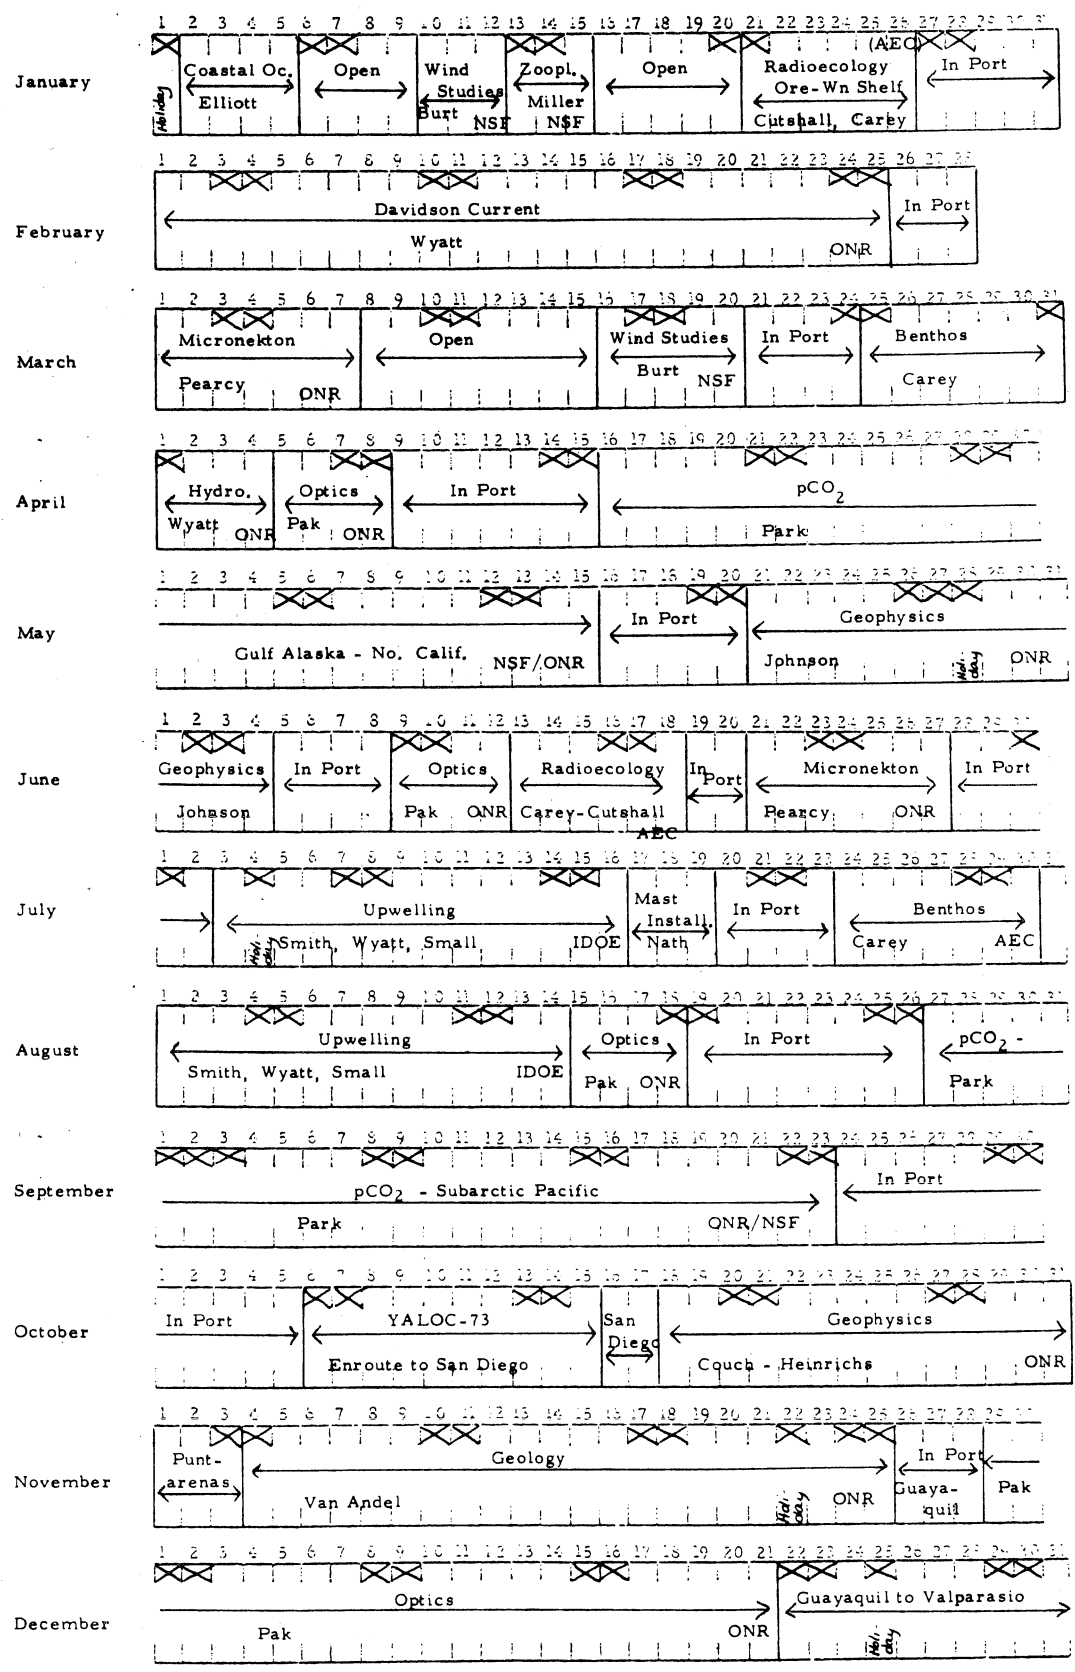 1 2 3 4 5 6 7 8 9 10 11 12 13 14 15 16 17 18 19 20 21 22 23 24 25 26 27 28 29 30 31
January
Holiday
Coastal Oc.
Elliott
Open
Wind
Studies
Burt
NSF
Zoopl.
Miller
NSF
Open
(AEC)
Radioecology
Ore-Wn Shelf
Cutshall, Carey
In Port
1 2 3 4 5 6 7 8 9 10 11 12 13 14 15 16 17 18 19 20 21 22 23 24 25 26 27 28
February
Davidson Current
Wyatt
ONR
In Port
1 2 3 4 5 6 7 8 9 10 11 12 13 14 15 16 17 18 19 20 21 22 23 24 25 26 27 28 29 30 31
March
Micronekton
Pearcy
ONR
Open
Wind Studies
Burt
NSF
In Port
Benthos
Carey
1 2 3 4 5 6 7 8 9 10 11 12 13 14 15 16 17 18 19 20 21 22 23 24 25 26 27 28 29 30
April
Hydro.
Wyatt
ONR
Optics
Pak
ONR
In Port
pCO2
Park
1 2 3 4 5 6 7 8 9 10 11 12 13 14 15 16 17 18 19 20 21 22 23 24 25 26 27 28 29 30 31
May
Gulf Alaska - No. Calif.
NSF/ONR
In Port
Geophysics
Johnson
Holi-
day
ONR
1 2 3 4 5 6 7 8 9 10 11 12 13 14 15 16 17 18 19 20 21 22 23 24 25 26 27 28 29 30
June
Geophysics
Johnson
In Port
Optics
Pak
ONR
Radioecology
Carey-Cutshall
AEC
In
Port
Micronekton
Pearcy
ONR
In Port
1 2 3 4 5 6 7 8 9 10 11 12 13 14 15 16 17 18 19 20 21 22 23 24 25 26 27 28 29 30 31
July
Holi-
day
Upwelling
Smith, Wyatt, Small
IDOE
Mast
Install.
Nath
In Port
Benthos
Carey
AEC
1 2 3 4 5 6 7 8 9 10 11 12 13 14 15 16 17 18 19 20 21 22 23 24 25 26 27 28 29 30 31
August
Upwelling
Smith, Wyatt, Small
IDOE
Optics
Pak
ONR
In Port
pCO2 -
Park
1 2 3 4 5 6 7 8 9 10 11 12 13 14 15 16 17 18 19 20 21 22 23 24 25 26 27 28 29 30
September
pCO2 - Subarctic Pacific
Park
ONR/NSF
In Port
1 2 3 4 5 6 7 8 9 10 11 12 13 14 15 16 17 18 19 20 21 22 23 24 25 26 27 28 29 30 31
October
In Port
YALOC-73
Enroute to San Diego
San
Diego
Geophysics
Couch - Heinrichs
ONR
1 2 3 4 5 6 7 8 9 10 11 12 13 14 15 16 17 18 19 20 21 22 23 24 25 26 27 28 29 30
November
Punt-
arenas
Geology
Van Andel
Holi-
day
ONR
In Port
Guaya-
quil
Pak
1 2 3 4 5 6 7 8 9 10 11 12 13 14 15 16 17 18 19 20 21 22 23 24 25 26 27 28 29 30 31
December
Optics
Pak
ONR
Guayaquil to Valparasio
Holi-
day